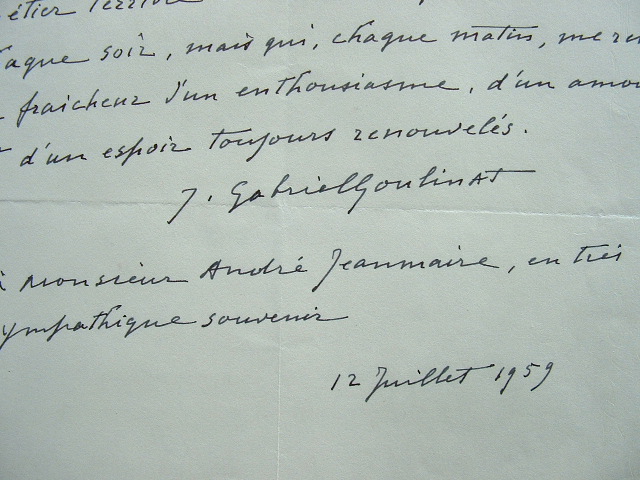 étier terrible
aque soir, mais qui, chaque matin, me
fraicheur d'un enthousiasme, d'un amou
d'un espoir toujours renouvelés.
J. Gabriel Goulinat
à Monsieur André Jeanmaire, en très
ympathique souvenir
12 Juillet 1959